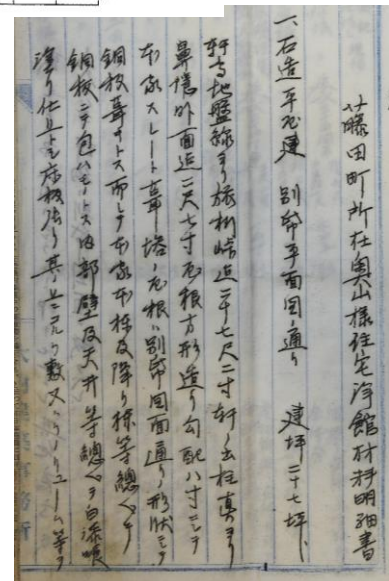 藤田町所在奥山様住宅洋館材料明細書
一、石造平家建 別帋平面図ノ通リ 建坪二十七坪、
軒高地盤線ヨリ旅桁峠迠二十七尺二寸軒ノ出柱真ヨリ
鼻隠外面迠二尺七寸屋根方形造リ勾配八寸ニシテ
本家スレート葺塔ノ屋根ハ別帋図面通リノ形状ニシテ
銅板葺キトス而シテ本家本棟及降リ棟等総ベテ
銅板ニテ包ハモノトス内部壁及天井等總ベテ白漆喰
塗リ仕上トシ床板張リ其ノ上ニコルク敷又ハリノリューム等ヲ